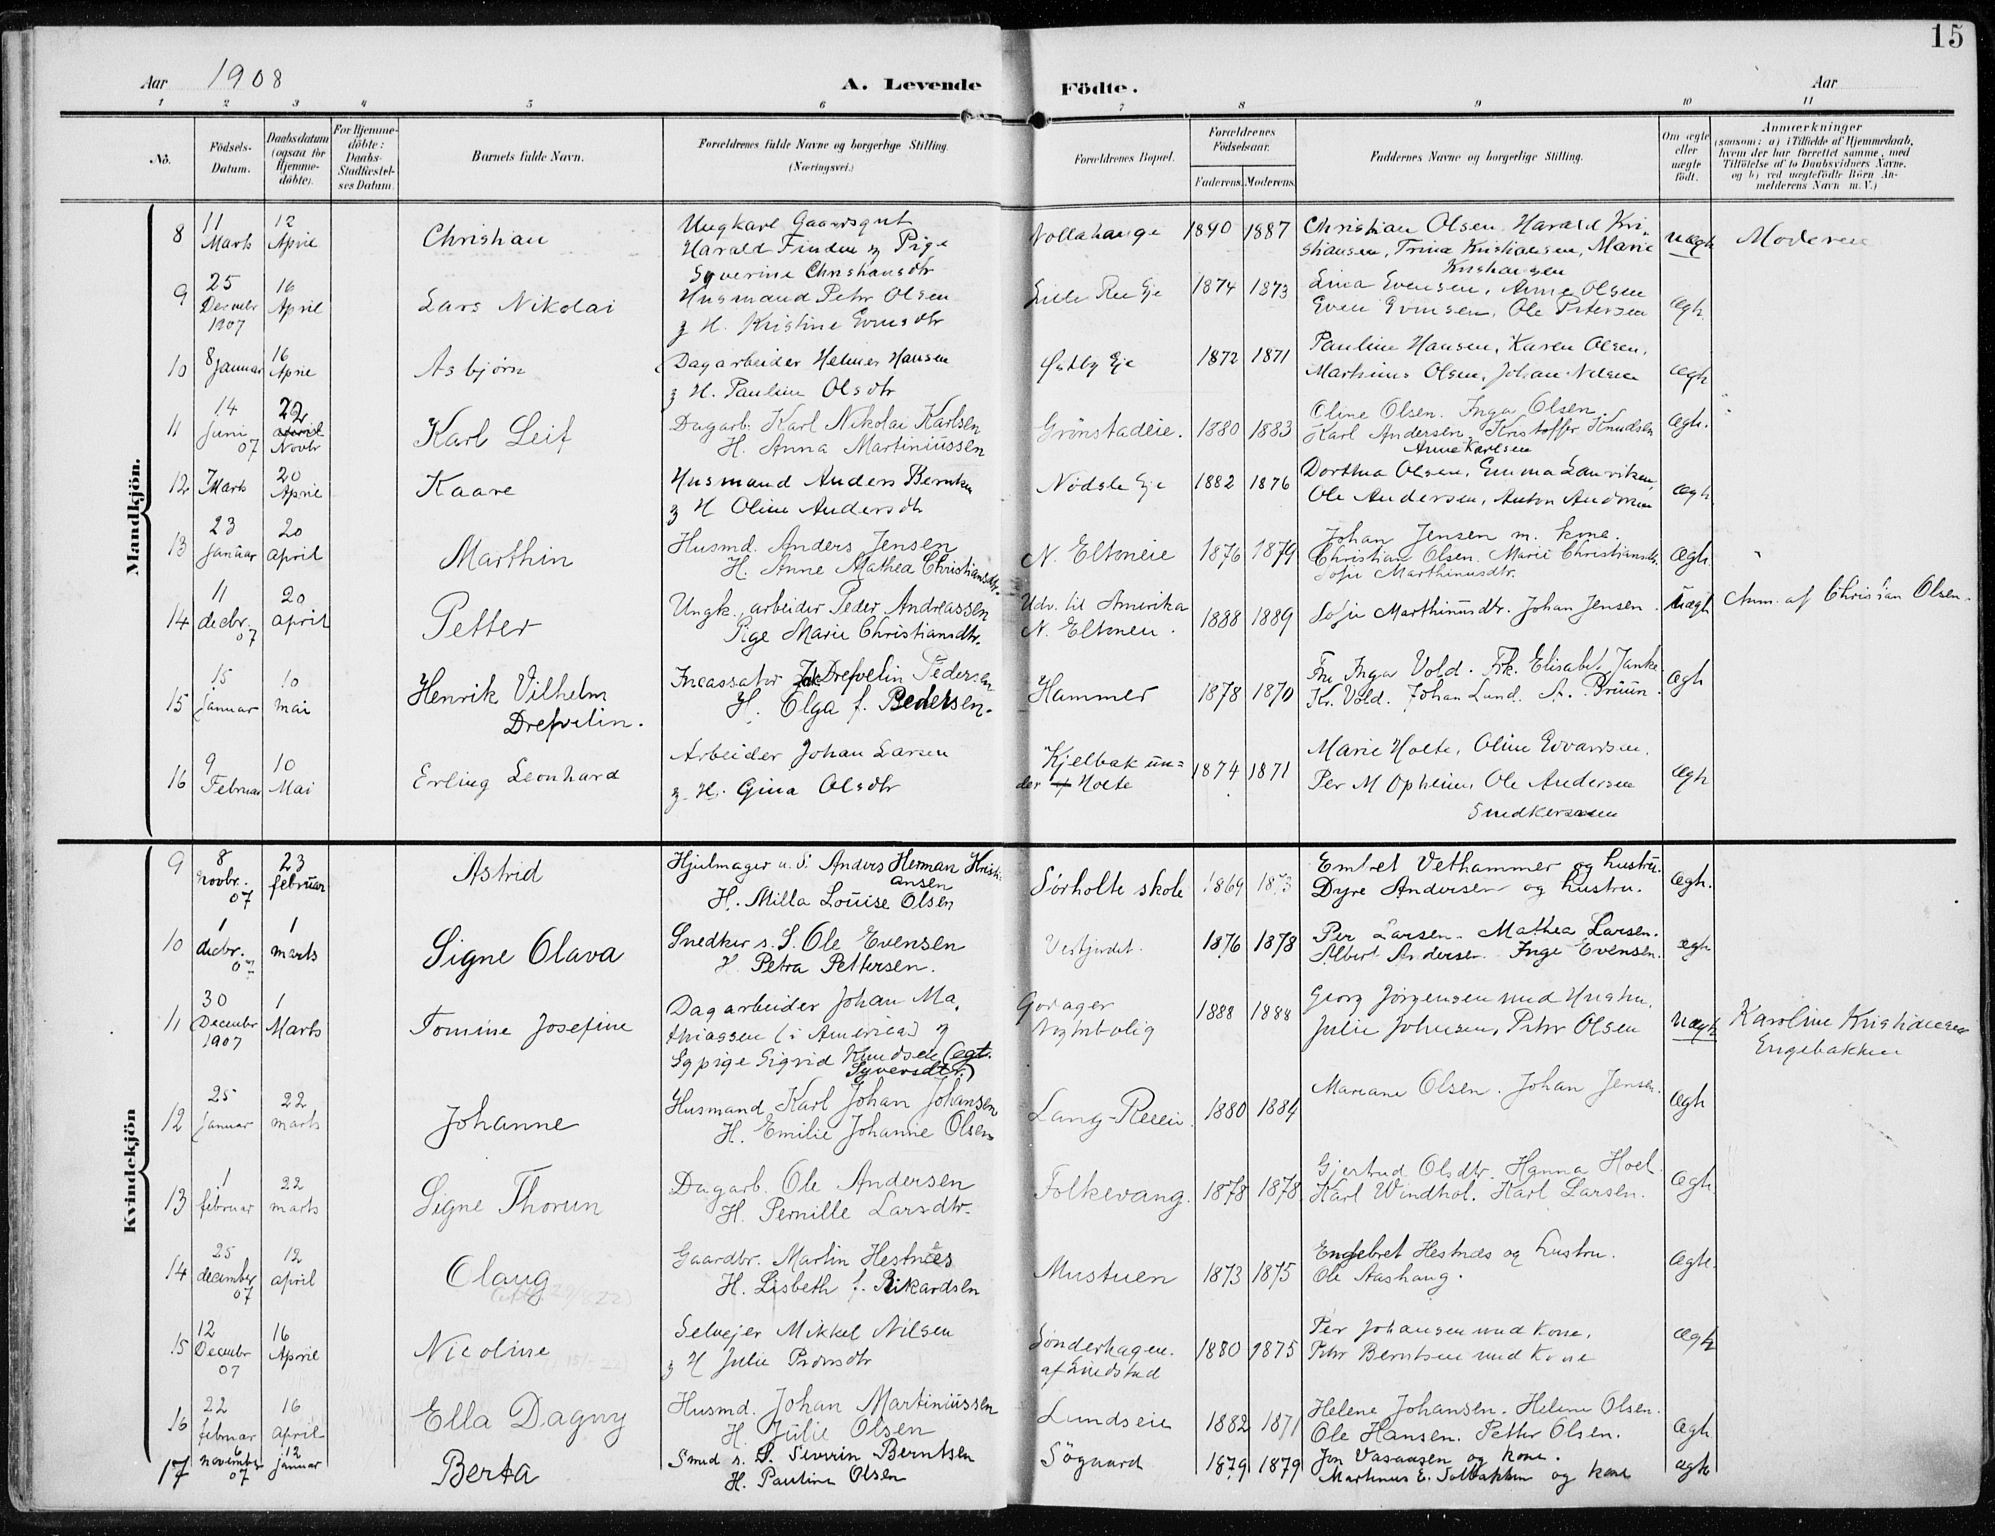 15
Aar 1908
A. Levende Födte.
Aar
1 2 3 4 5 6 7 8 9 10 11
No.
Födsels-Datum.
Daabsdatum (ogsaa for Hjemme-döbte).
For Hjemme-döbte: Daabs-Stadfæstel-ses Datum.
Barnets fulde Navn.
Forældrenes fulde Navne og borgerlige Stilling.
(Næringsvei.)
Forældrenes Bopæl.
Forældrenes Födselsaar.
Faderens. Moderens.
Faddernes Navne og borgerlige Stilling.
Om ægte eller uægte födt.
Anmærkninger
(saasom: a) i Tilfælde af Hjemmedaab, hvem der har forrettet samme, med Tilföielse af to Daabsvidners Navne, og b) ved uægtefödte Börn An-melderens Navn m. V.)
Mandkjön.
8 11 Marts 12 April Christian Ungkarl Gaardsgut
Harald Finden & Pige
Syverine Christiansdtr
Nollahauge 1890 1887 Christian Olsen, Harald Kri-
stiansen, Trina Kristiansen, Marie
Kristiansen
uægte Moderen
9 25 Decembr 1907 16 April Lars Nikolai Husmand Petr Olsen
& H. Kristine Evensdtr
Lille Ree Eje 1874 1873 Lina Evensen, Anne Olsen
Even Evensen, Ole Petersen
ægte
10 8 Januar 16 April Asbjørn Dagarbeider Helmer Hansen
& H. Pauline Olsdtr
Østby Eje 1872 1871 Pauline Hansen, Karen Olsen,
Martinus Olsen, Johan Nilsen
ægte
11 14 Juni 07 22 april Novbr Karl Leif Dagarb. Karl Nikolai Karlsen
H. Anna Martiniussen
Grönstadeie. 1880 1883 Oline Olsen. Inga Olsen.
Karl Andersen. Kristoffer Knudsen
Anne Karlsen
ægte.
12 Marts 20 April Kaare Husmand Anders Berntsen
& H Oline Andersdtr
Nødsle Eje 1882 1876 Dorthea Olsen, Emma Lauritsen,
Ole Andersen, Anton Andersen
ægte
13 23 Januar 20 april Marthin Husmd. Anders Jensen
H. Anne Mathea Christiansdtr.
N. Eltoneie 1876 1879 Johan Jensen m. kone.
Christian Olsen. Marie Christiansdtr.
Sofie Marthinusdtr.
ægte.
14 11 decbr. 07 20 april Petter Ungk., arbeider Peder Andreassen
Pige Marie Christiansdtr.
Udv. til Amerika
N. Eltoneie.
1888 1889 Sofie Marthinusdtr. Johan Jensen. uægte Anm. af Christian Olsen.
15 15 januar 10 mai Henrik Vilhelm
Drefvelin.
Incassator Drefvelin Pedersen
H. Olga f. Pedersen.
Hammer 1878 1870 Fru Inga Vold. Frk. Elisabet Janke.
Kr. Vold. Johan Lund. A. Bruun.
ægte
16 9 Februar 10 Mai Erling Leonhard Arbeider Johan Larsen
& H. Gina Olsdtr
Kjelbak un=
der Holte
1874 1871 Marie Holte, Oline Evvardsen.
Per M Opheim, Ole Andersen
ægte
Kvindekjön
9 8 Novbr. 07 23 februar Astrid Hjulmager u. S. Anders Herman Kristi-
ansen
H. Milla Louise Olsen
Sörholte skole 1869 1873 Embret Vethammer og hustru.
Dyre Andersen og hustru.
ægte.
10 1 decbr. 07 1 marts Signe Olava Snedker s. S. Ole Evensen
H. Petra Pettersen.
Vestjordet. 1876 1878 Per Larsen. Mathea Larsen.
Albert Andersen. Inge Evensen.
ægte
11 30 December 1907 1 Marts Tomine Josefine Dagarbeider Johan Ma-
thiassen (i America) &
Sypige Sigrid Knudsen (egt.
Syversdtr.)
Godager
Nymbolig
1888 1888 Georg Jørgensen med Hustru.
Julie Johnsen, Petr Olsen
uægte Karoline Kristiansen
Engebakken
12 25 januar 22 marts Johanne Husmand Karl Johan Johansen
H. Emilie Johanne Olsen
Lang-Reeie. 1880 1884 Mariane Olsen. Johan Jensen. ægte
13 1 februar 22 marts Signe Thorun Dagarb. Ole Andersen
H. Pernille Larsdtr.
Folkevang. 1878 1878 Gjertrud Olsdtr. Hanna Hoel.
Karl Windhol. Karl Larsen.
ægte.
14 25 december 07 12 april Olaug Gaardbr. Martin Hestnæs
H. Lisbeth f. Rikardsen
Mustuen 1873 1875 Engebret Hestnæs og hustru.
Ole Aashaug.
ægte.
15 12 Decembr 07 16 April Nicoline Selvejer Mikkel Nilsen
& H Julie Pedersdtr
Sønderhagen.
af Lindstad
1880 1875 Per Johansen med Kone,
Petr Berntsen med Kone
ægte
16 22 februar 16 april Ella Dagny Husmd. Johan Martiniussen
H. Julie Olsen
Lundseie 1882 1871 Helene Johansen. Helene Olsen.
Ole Hansen. Petter Olsen.
ægte
17 6 november 07 12 januar Berta Smed s. S. Severin Berntsen
H. Pauline Olsen
Sögaard 1879 1879 Jon Vasaasen og kone.
Martinus E. Solbakken og kone
ægte